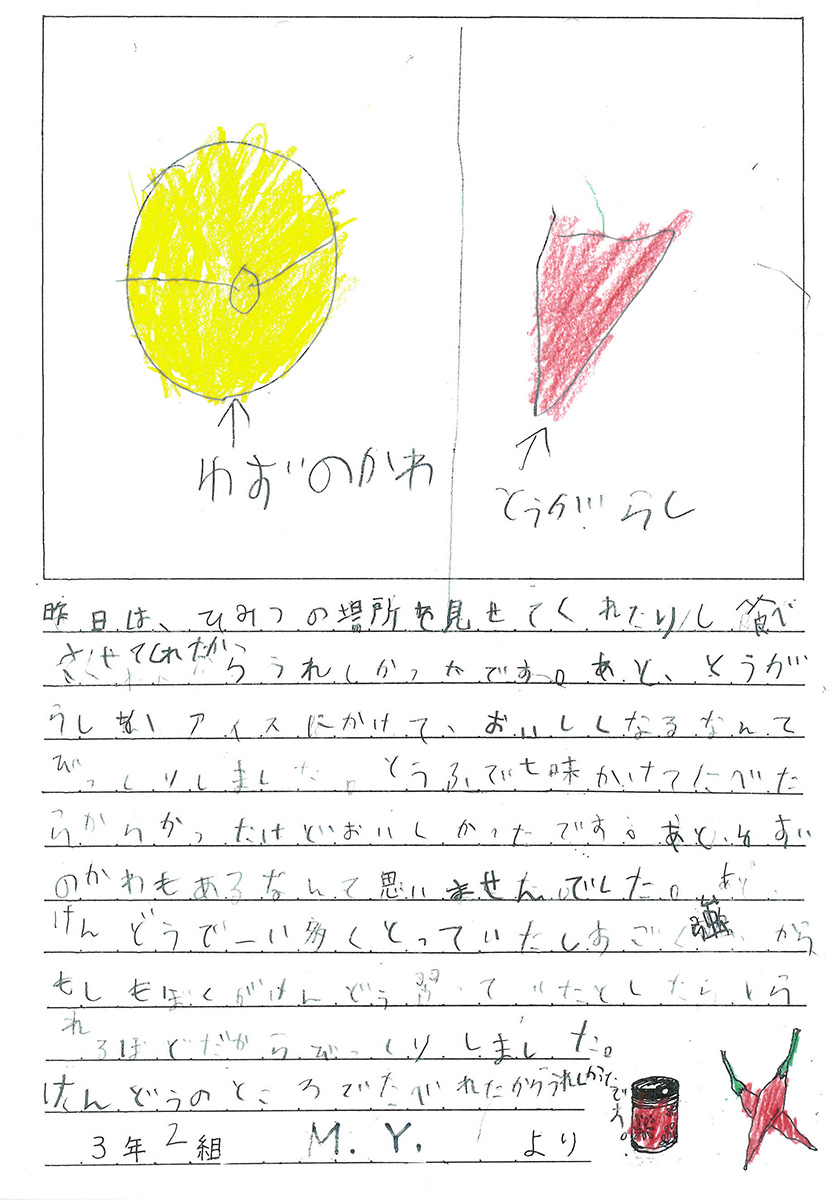 ゆずのかわ
とうがらし
昨日は、ひみつの場所を見せてくれたりし食べ
させてくれたからうれしかったです。あと、とうが
らし アイスにかけて、おいしくなるなんて
びっくりしました。とうふで七味かけてたべた
らからかったけどおいしかったです。あとゆず
のかわもあるなんて思いませんでした。あと、
けんどうで一い多くとっていたしすごく強いから
もしもぼくがけんどう習っていたとしたらとら
れるほどだからびっくりしました。
けんどうのところでたべれたからうれしかったです。
3年2組 M.Y. より